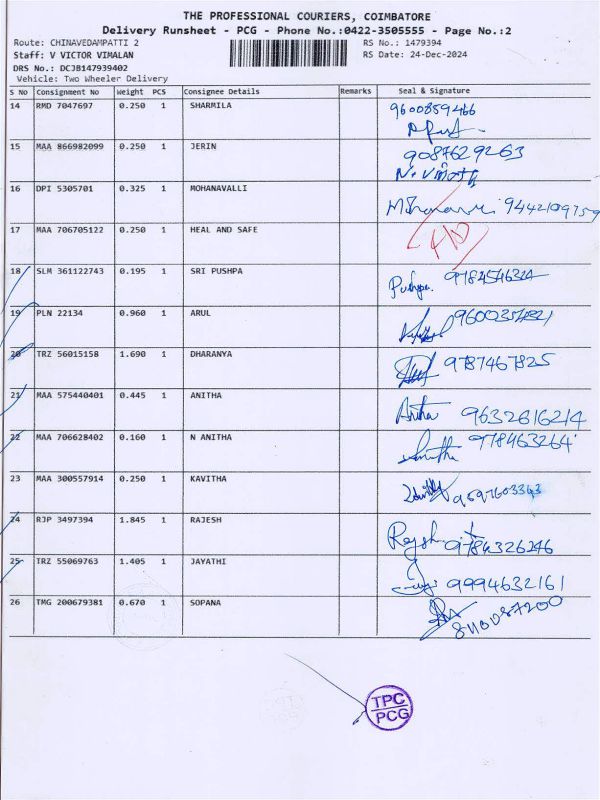 THE PROFESSIONAL COURIERS, COIMBATORE
Delivery Runsheet - PCG - Phone No.:0422-3505555 - Page No.:2
Route: CHINAVEDAMPATTI 2 RS No.: 1479394
Staff: V VICTOR VIMALAN RS Date: 24-Dec-2024
DRS No.: DCJB147939402
Vehicle: Two Wheeler Delivery
S No Consignment No Weight PCS Consignee Details Remarks Seal & Signature
14 RMD 7047697 0.250 1 SHARMILA 9600859466
15 MAA 866982099 0.250 1 JERIN 9087629263
N. Vinoth
16 DPI 5305701 0.325 1 MOHANAVALLI 9442109759
17 MAA 706705122 0.250 1 HEAL AND SAFE
18 SLM 361122743 0.195 1 SRI PUSHPA Pushpa.
19 PLN 22134 0.960 1 ARUL
20 TRZ 56015158 1.690 1 DHARANYA 9787467825
21 MAA 575440401 0.445 1 ANITHA Anitha 9632616214
22 MAA 706628402 0.160 1 N ANITHA
23 MAA 300557914 0.250 1 KAVITHA
24 RJP 3497394 1.845 1 RAJESH 9784326246
25 TRZ 55069763 1.405 1 JAYATHI 9994632161
26 TMG 200679381 0.670 1 SOPANA
TPC
PCG